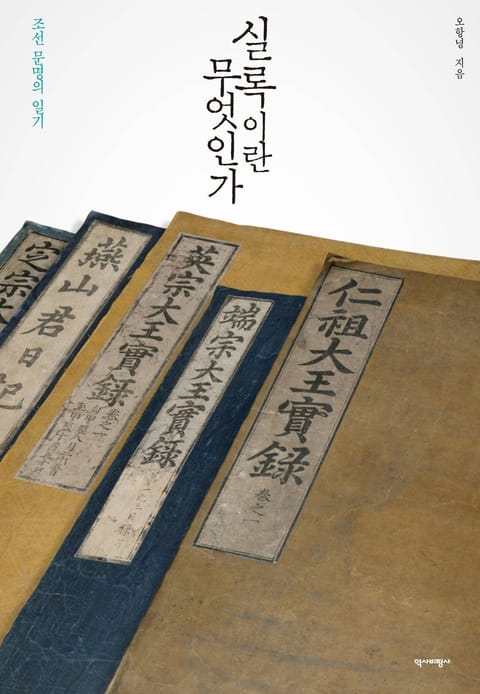 오항녕 지음
실록이란
무엇인가
조선 문명의 일기
仁祖大王實錄 卷之一
端宗大王實錄
英宗大王實錄 卷之一
燕山君日記
定宗大
역사비평사